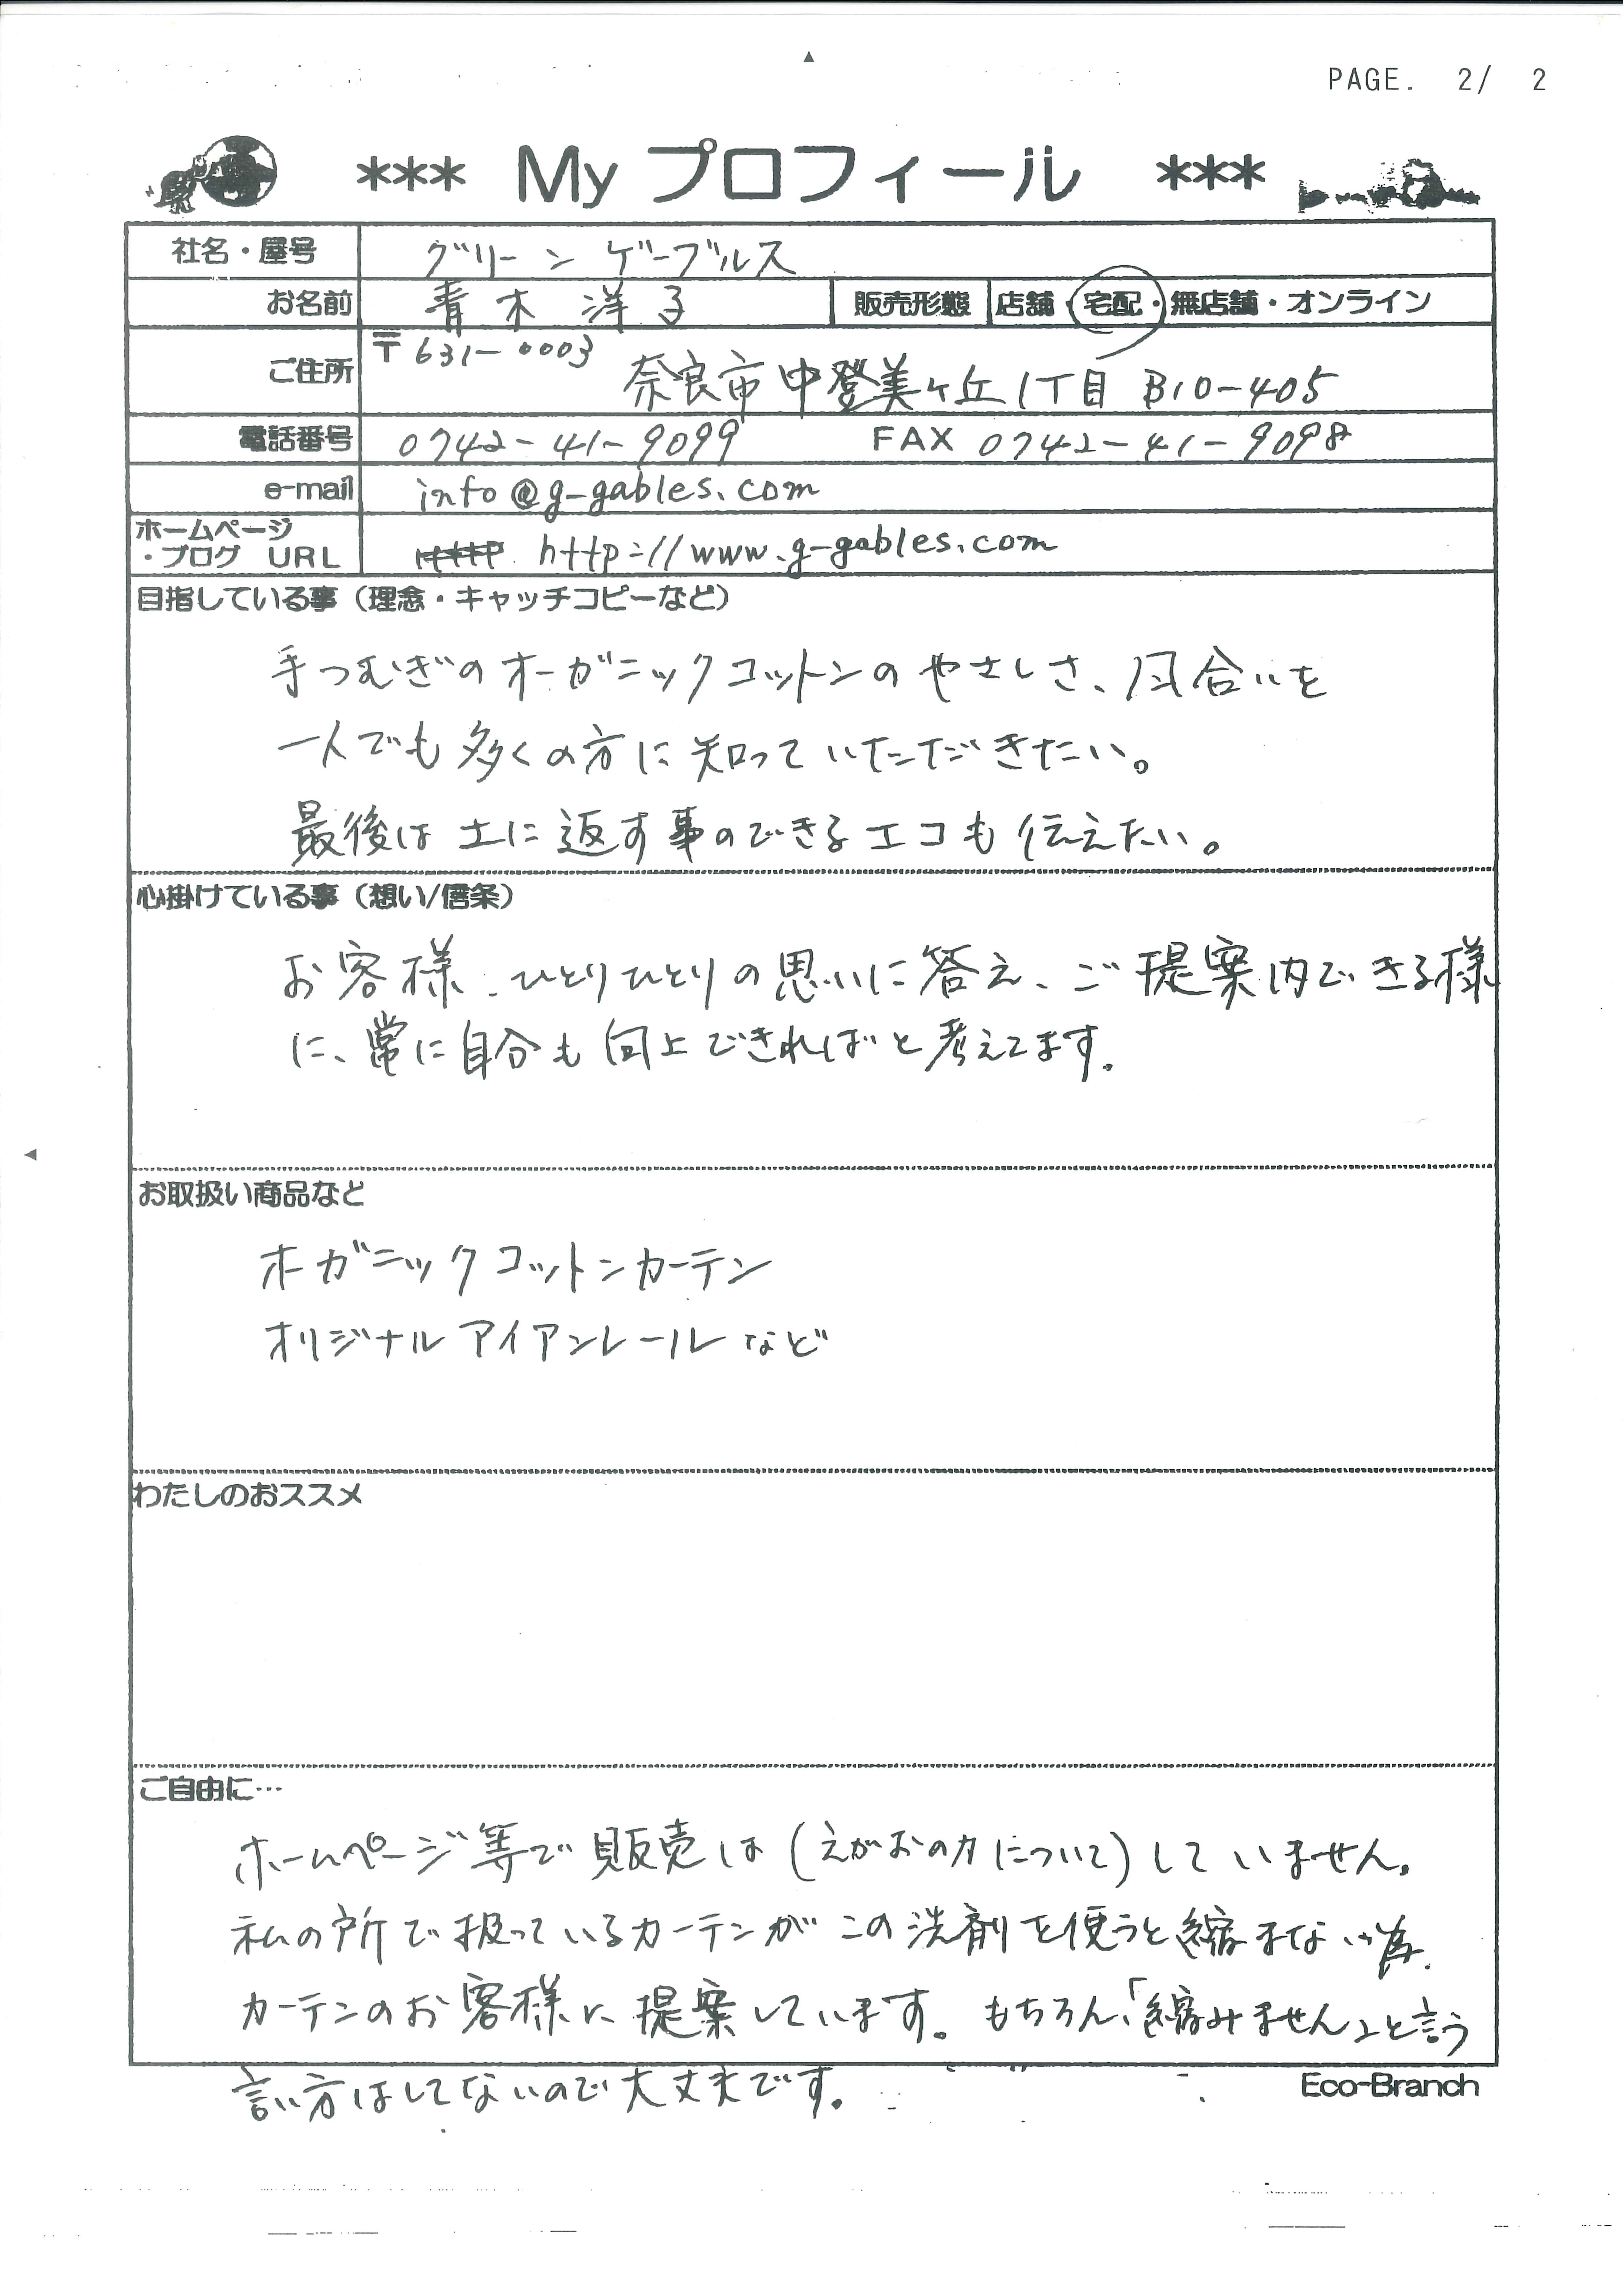 PAGE. 2/ 2
*** My プロフィール ***
社名・屋号 グリーン ゲーブルス
お名前 青木 洋子 販売形態 店舗・宅配・無店舗・オンライン
ご住所 〒631-0003
奈良市中登美ヶ丘1丁目 B10-405
電話番号 0742-41-9099 FAX 0742-41-9098
e-mail info@g-gables.com
ホームページ
・ブログ URL http://www.g-gables.com
目指している事（理念・キャッチコピーなど）
手つむぎのオーガニックコットンのやさしさ、風合いを
一人でも多くの方に知っていただきたい。
最後は土に返す事のできるエコも伝えたい。
心掛けている事（想い/信条）
お客様、ひとりひとりの思いに答え、ご提案内できる様
に、常に自分も向上できればと考えてます。
お取扱い商品など
オーガニックコットンカーテン
オリジナルアイアンレールなど
わたしのおススメ
ご自由に…
ホームページ等で販売は（えがおの力について）していません。
私の所で扱っているカーテンがこの洗剤を使うと縮まない為、
カーテンのお客様に提案しています。もちろん、「縮みません」と言う
言い方はしてないので大丈夫です。
Eco-Branch